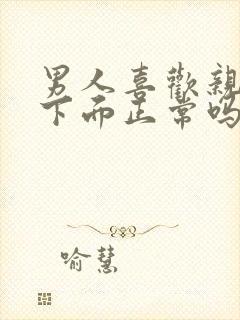 男人喜歡親
下面正常嗎
喻慧